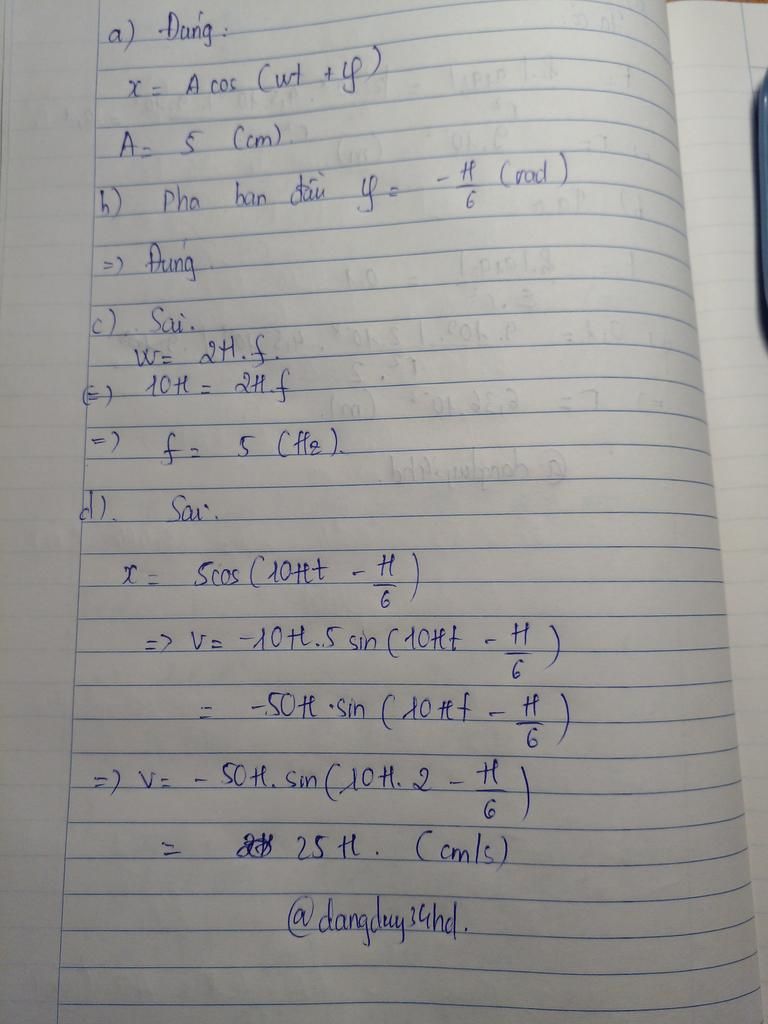 a) Đúng:
x = A cos (ωt + φ)
A = 5 (cm)
b) Pha ban đầu φ = -π/6 (rad)
=> Đúng
c) Sai.
ω = 2π.f.
(=) 10π = 2π.f
=> f = 5 (Hz).
d). Sai.
x = 5cos(10πt - π/6)
=> v = -10π.5 sin(10πt - π/6)
= -50π.sin(10πt - π/6)
=> v = -50π.sin(10π.2 - π/6)
= 25π. (cm/s)
@dangduy34hd.